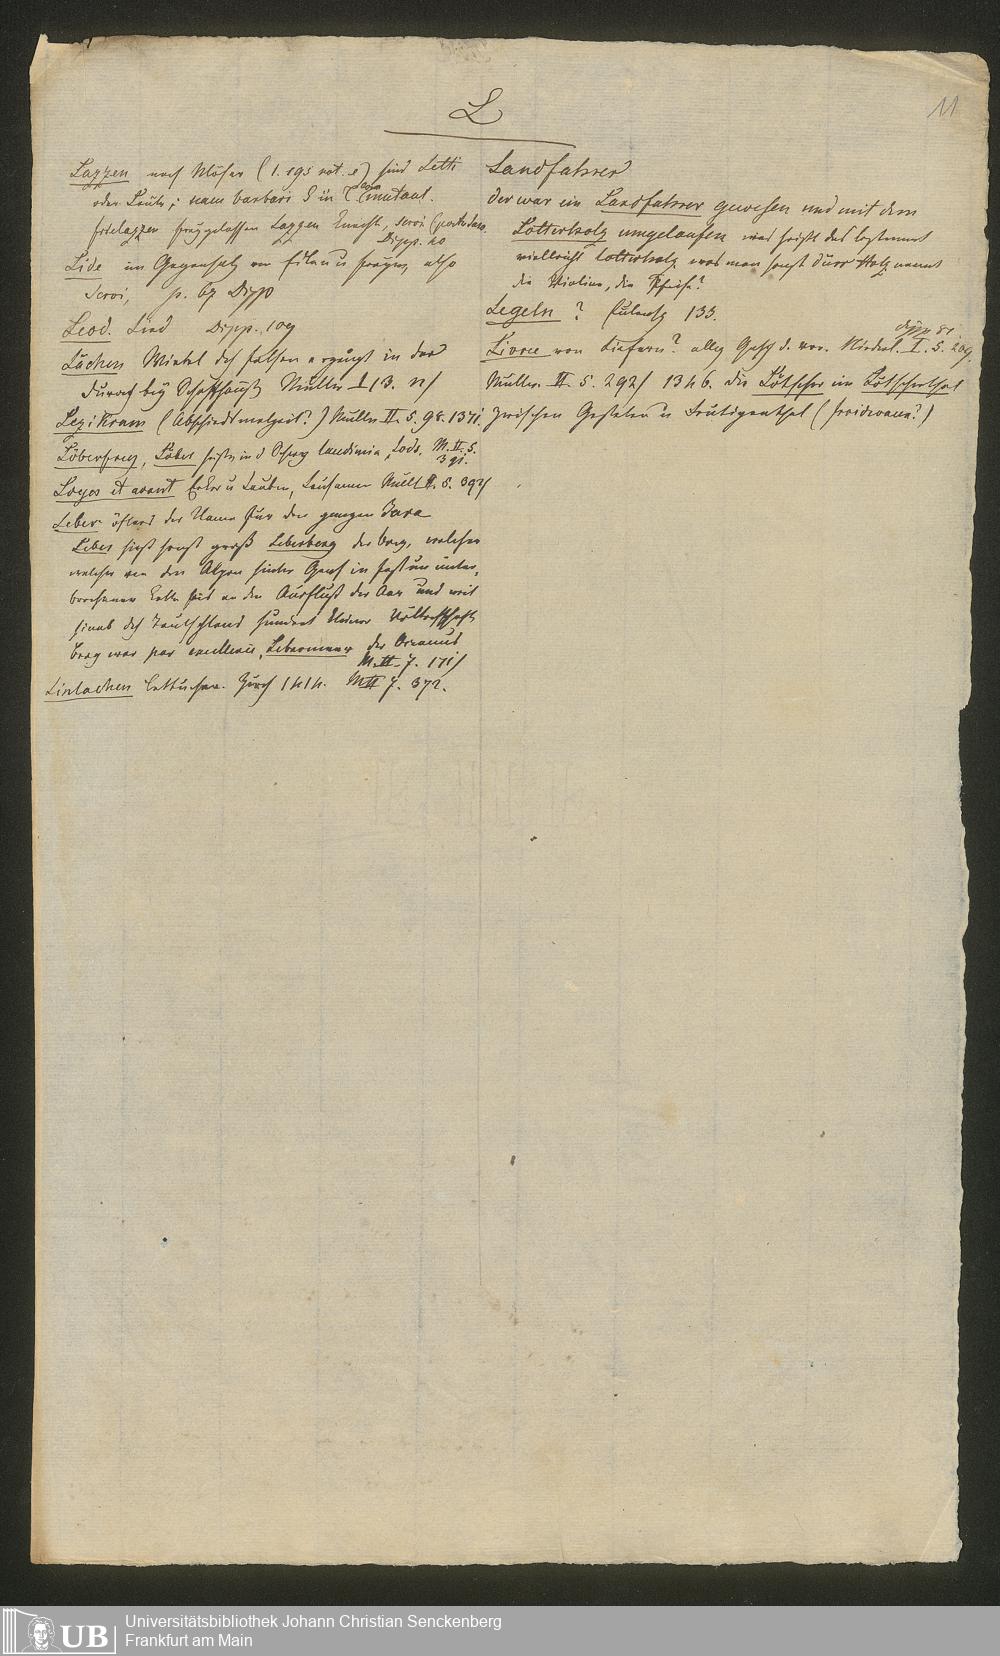 L
11
Lazzen nach Möser (1. 195 not. e) sind Letti
oder Leute; nam barbari S in T mutant.
frielazzen freygelassen Lazzen Knechte, servi
Dipp. 20
Lide im Gegensatz von Edlen u freyen, also
servi, p. 67 Dipp
Leod. Lied Dipp. 109
Lächen Wirbel des felsen erzeugt in der
bey Schaffhausen Müller I 13. n/
Lezikram (Abschiedsmalzeit?) Müller II. S. 98. 1371.
Löberherz, Löber hieße in d laudimia, Lods. M. II. S.
391.
Loyes et avant Erker u Lauben, Lausanne Müll II. S. 392/
Leber öfters der Name für den ganzen Jura
Leber hieß sonst groß Leberberg der berg, welcher
welcher von den Alpen hinter Genf in fast ununter-
brochener Kette bis an den Ausfluß der Aar und weit
hinab des Teutschland hundert kleiner Völkerschaft
berg war par excellence, Lebermeer der Oceanus
M. II. 7. 171/
Linlachen betttücher. Zürch 1414. M II 7. 372.
Landfahrer
der war ein Landfahrer gewesen und mit dem
Lotterholz umgelaufen was heißt das bestimmt
vielleicht Lotterholz was man sonst dürr Holz nennt
die Violine, die Pfeife?
Legeln? 133.
Livree von liefern? allg Gesch d. ver. Niederl. I. S. 209.
Müller. II. S. 292/ 1346. die Lötscher im Lötscherthal
zwischen Gestelen u Frutigenthal
Universitätsbibliothek Johann Christian Senckenberg
Frankfurt am Main
UB